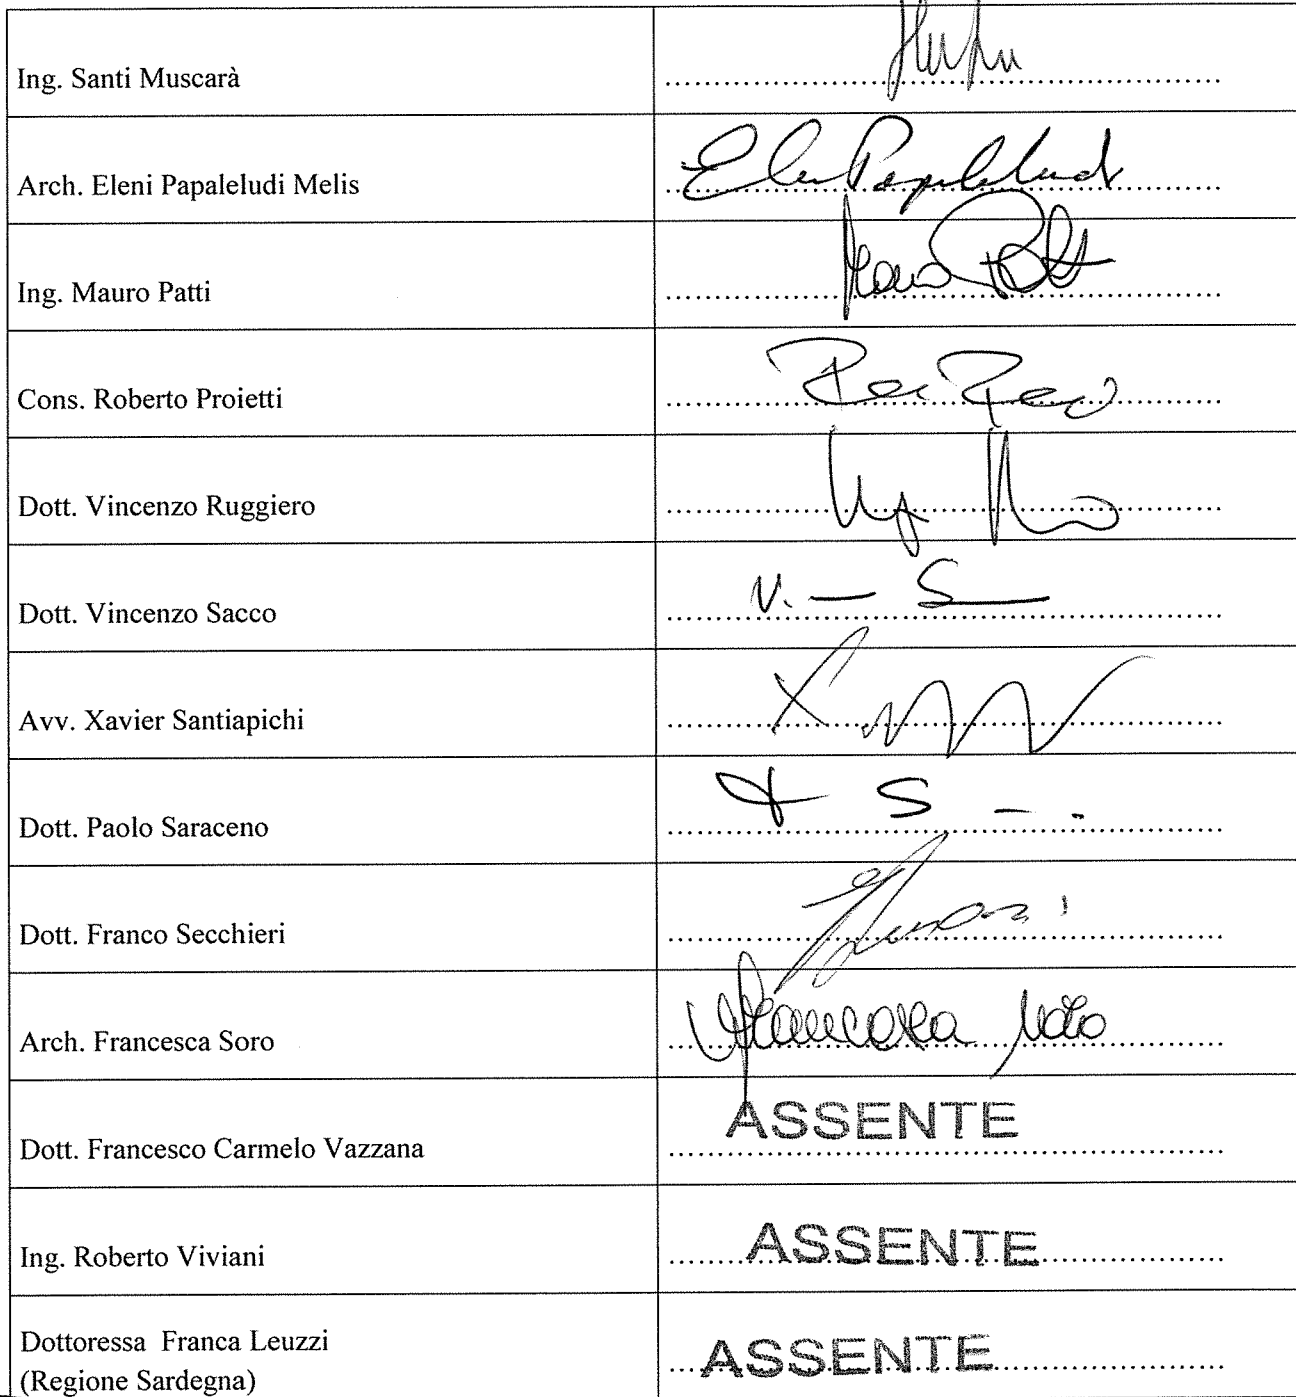 Ing. Santi Muscarà
Arch. Eleni Papaleludi Melis
Elen Papaleludi
Ing. Mauro Patti
Mauro Patti
Cons. Roberto Proietti
Dott. Vincenzo Ruggiero
Dott. Vincenzo Sacco
V. — S
Avv. Xavier Santiapichi
Dott. Paolo Saraceno
Dott. Franco Secchieri
Arch. Francesca Soro
Francesca Soro
Dott. Francesco Carmelo Vazzana
ASSENTE
Ing. Roberto Viviani
ASSENTE
Dottoressa Franca Leuzzi
(Regione Sardegna)
ASSENTE